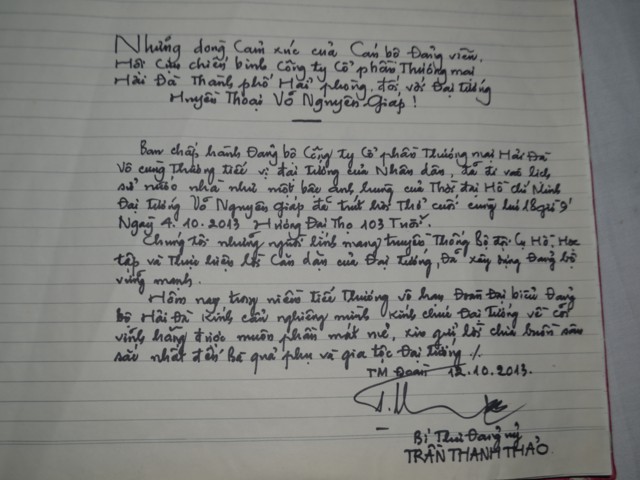 Những dòng Cảm xúc của Cán bộ Đảng viên,
Hội Cựu chiến binh Công ty Cổ phần Thương mại
Hải Đà Thành phố Hải phòng đối với Đại tướng
Huyền Thoại Võ Nguyên Giáp!
Ban chấp hành Đảng bộ Công ty Cổ phần Thương mại Hải Đà
Vô cùng Thương tiếc vị đại tướng của Nhân dân, đã đi vào lịch
sử nước nhà như một bậc anh hùng của Thời đại Hồ Chí Minh
Đại tướng Võ Nguyên Giáp đã trút hơi Thở cuối cùng lúc
Ngày 4.10.2013 Hưởng Đại Thọ 103 Tuổi.
Chúng tôi những người lính mang truyền Thống Bộ đội Cụ Hồ, Học
tập và Thực hiện lời Căn dặn của Đại tướng, Đã xây dựng Đảng bộ
vững mạnh.
Hôm nay trong niềm tiếc Thương vô hạn Đoàn Đại biểu Đảng
bộ Hải Đà Kính cẩn nghiêng mình Kính chúc Đại Tướng về cõi
vĩnh hằng được muôn phần mát mẻ, xin gửi lời chia buồn sâu
sắc nhất đến Bà quả phụ và gia tộc Đại tướng ./.
TM Đoàn 12.10.2013.
Bí Thư Đảng uỷ
TRẦN THANH THẢO